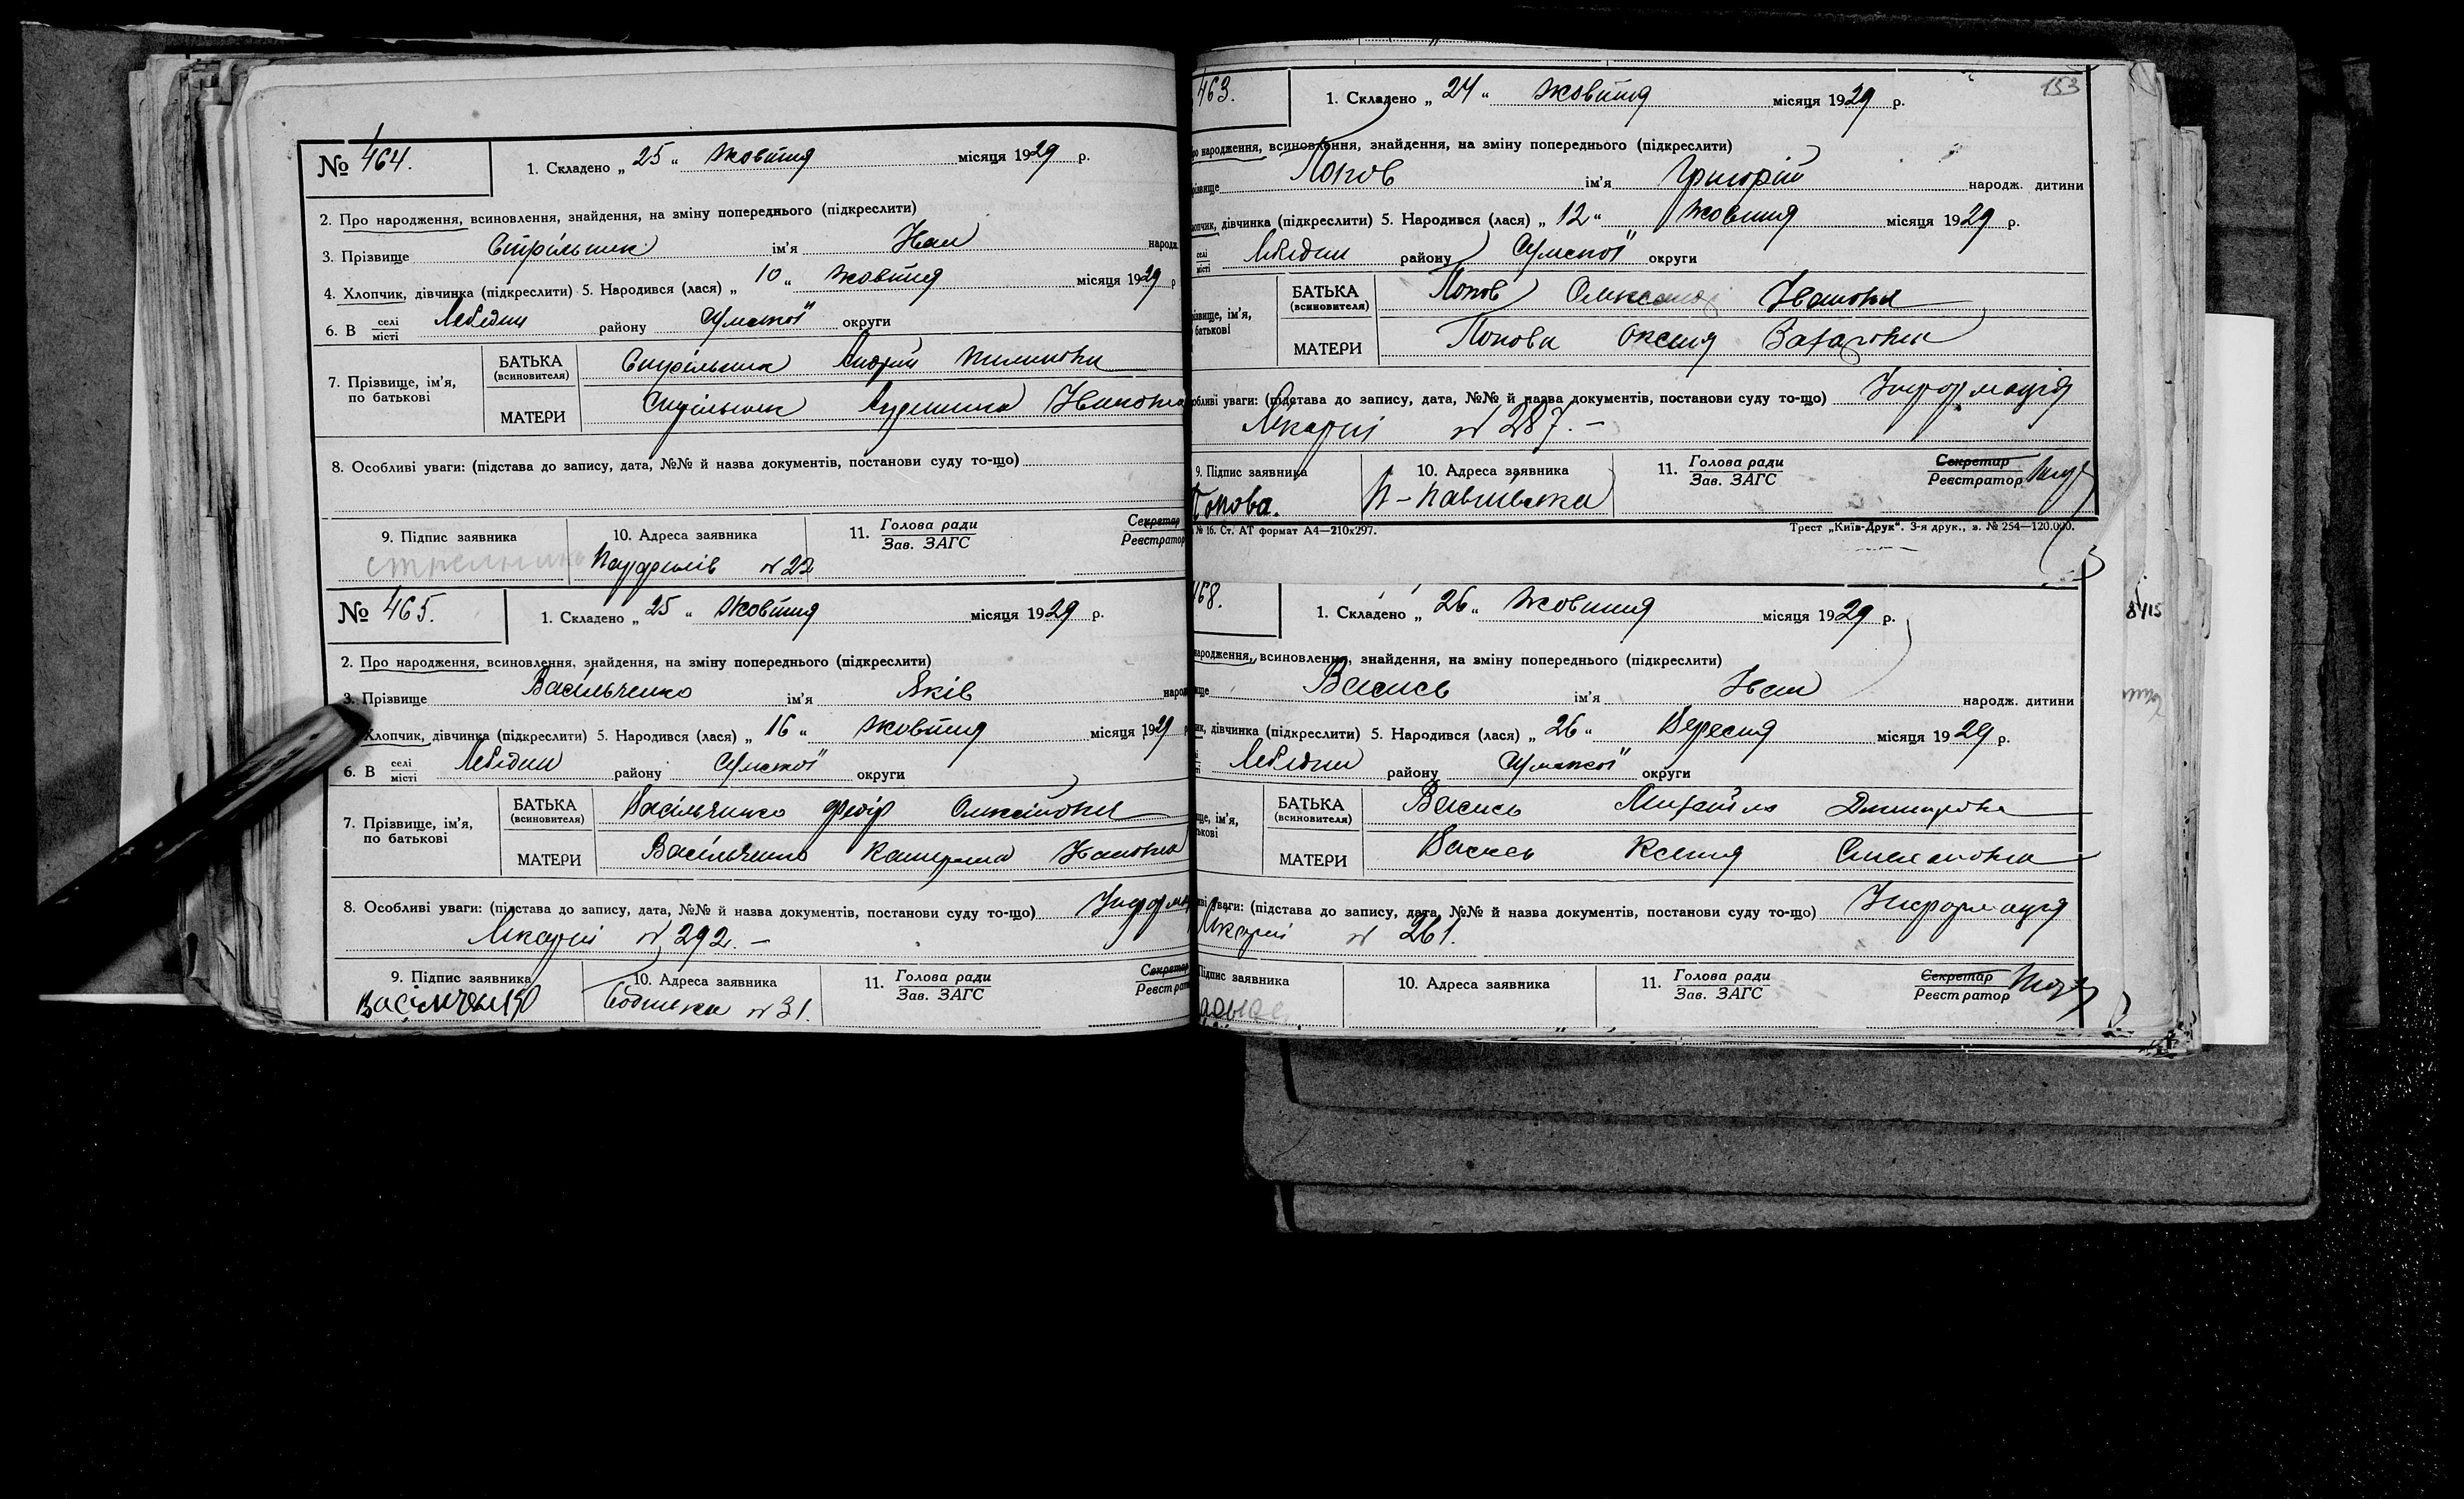 № 464.
1. Складено „ 25 “ жовтня місяця 1929 р.
2. Про народження, всиновлення, знайдення, на зміну попереднього (підкреслити)
3. Прізвище Стрільник ім'я Іван народж.
4. Хлопчик, дівчинка (підкреслити) 5. Народився (лася) „ 10 “ жовтня місяця 1929 р
6. В селі місті Лебедин району Сумської округи
7. Прізвище, ім'я, по батькові
БАТЬКА (всиновителя) Стрільник Андрій
МАТЕРИ Стрільник Івановна
8. Особливі уваги: (підстава до запису, дата, №№ й назва документів, постанови суду то-що)
9. Підпис заявника
10. Адреса заявника
11. Голова ради Зав. ЗАГС
Секретар Реєстратор
№ 22
№ 465.
1. Складено „ 25 “ жовтня місяця 1929 р.
2. Про народження, всиновлення, знайдення, на зміну попереднього (підкреслити)
3. Прізвище Васільченко ім'я Яків народ
Хлопчик, дівчинка (підкреслити) 5. Народився (лася) „ 16 “ жовтня місяця 1929 р
6. В селі місті Лебедин району Сумської округи
7. Прізвище, ім'я, по батькові
БАТЬКА (всиновителя) Васільченко Федір Олексійович
МАТЕРИ Васільченко Катерина Івановна
8. Особливі уваги: (підстава до запису, дата, №№ й назва документів, постанови суду то-що) Інформ
Лікарні № 292. –
9. Підпис заявника
10. Адреса заявника
11. Голова ради Зав. ЗАГС
Секретар Реєстрато
Васільченко
№ 31.
153
463.
1. Складено „ 24 “ жовтня місяця 1929 р.
ро народження, всиновлення, знайдення, на зміну попереднього (підкреслити)
різвище Попов ім'я Григорій народж. дитини
опчик, дівчинка (підкреслити) 5. Народився (лася) „ 12 “ жовтня місяця 1929 р.
селі місті Лебедин району Сумської округи
ізвище, ім'я, батькові
БАТЬКА (всиновителя) Попов Олександ Іванович
МАТЕРИ Попова Оксенія Захаровна
обливі уваги: (підстава до запису, дата, №№ й назва документів, постанови суду то-що) Інформація
Лікарні № 287. –
9. Підпис заявника
10. Адреса заявника
11. Голова ради Зав. ЗАГС
Секретар Реєстратор
Попова.
№ 16. Ст. АТ формат А4—210х297.
Трест „Київ-Друк“. 3-я друк., з. № 254—120.000.
468.
1. Складено „ 26 “ жовтня місяця 1929 р.
народження, всиновлення, знайдення, на зміну попереднього (підкреслити)
ище Васись ім'я Іван народж. дитини
ик, дівчинка (підкреслити) 5. Народився (лася) „ 26 “ Вересня місяця 1929 р.
Лебедин району Сумської округи
ще, ім'я, тькові
БАТЬКА (всиновителя) Васись Михайло Дмитрович
МАТЕРИ Васись Ксенія Степановна
иві уваги: (підстава до запису, дата, №№ й назва документів, постанови суду то-що) Інформація
Лікарні № 261.
Підпис заявника
10. Адреса заявника
11. Голова ради Зав. ЗАГС
Секретар Реєстратор